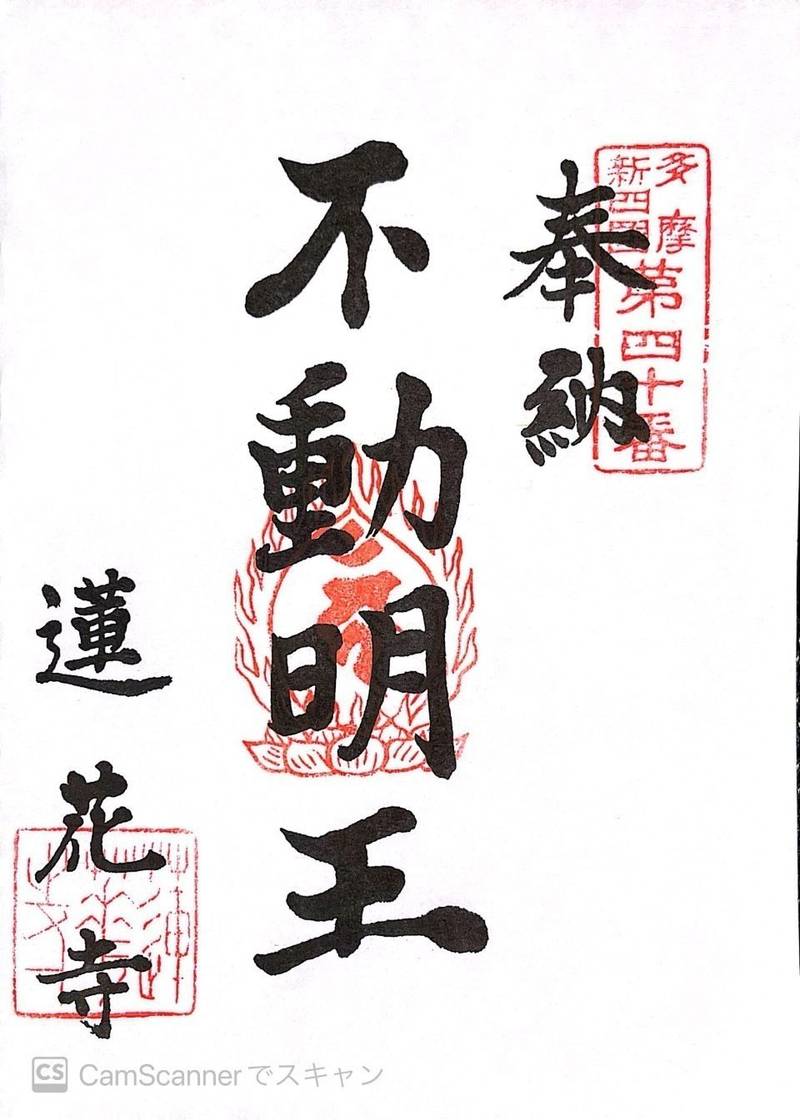 多摩
新四国
第四十番
奉納
不動明王
蓮花寺
CS CamScannerでスキャン